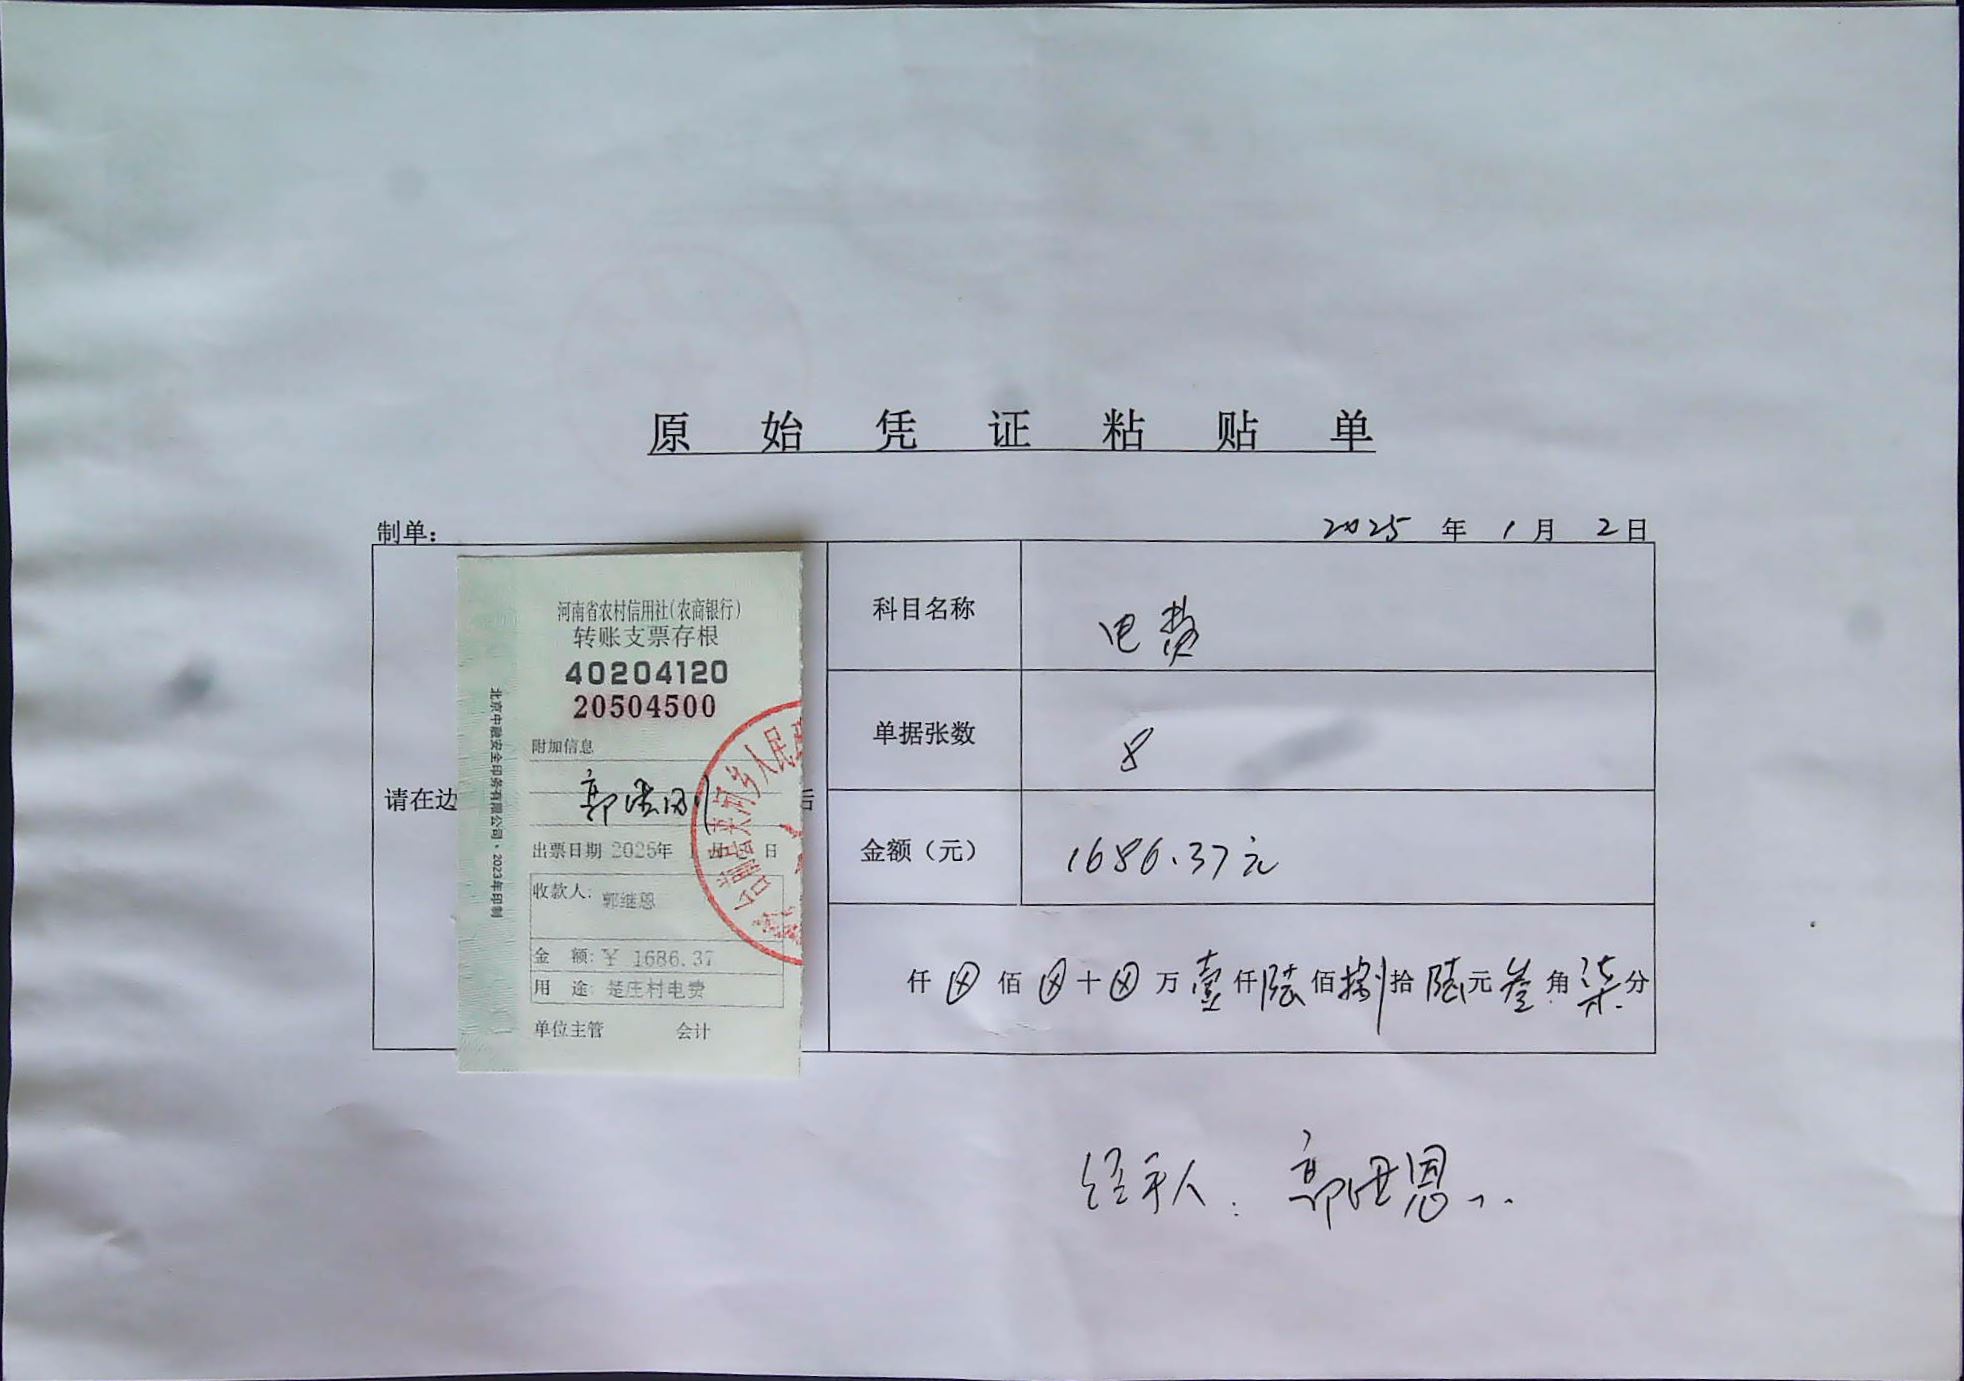 原始凭证粘贴单
制单：
2025年1月2日
请在边
后
河南省农村信用社（农商银行）
转账支票存根
40204120
20504500
附加信息
出票日期 2025年1月 日
收款人：郭继恩
金额：￥1686.37
用途：楚庄村电费
单位主管 会计
北京中融安全印务有限公司·2023年印制
乡人民
科目名称 电费
单据张数 8
金额（元） 1686.37元
仟⊗佰⊗十⊗万壹仟陆佰捌拾陆元叁角柒分
经手人：郭继恩